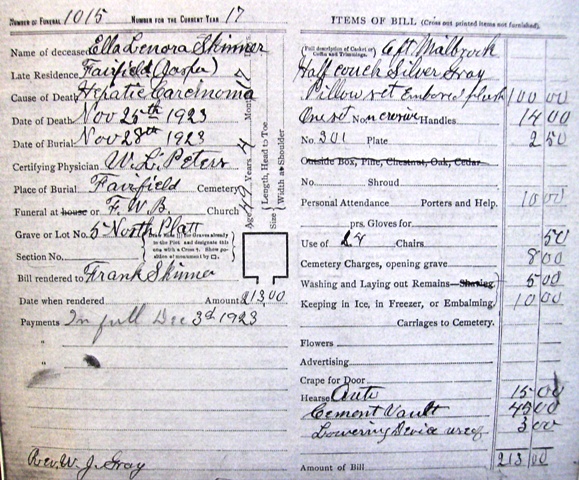 NUMBER OF FUNERAL 1015 NUMBER FOR THE CURRENT YEAR 17
Name of deceased Ella Lenora Skinner
Late Residence Fairfield (Jasper)
Cause of Death Hepatic Carcinoma
Date of Death Nov 25th 1923
Date of Burial Nov 28th 1923
Certifying Physician W. L. Peters
Place of Burial Fairfield Cemetery
Funeral at house or F. W. B. Church
Grave or Lot No. 5 North Platt
Section No.
Bill rendered to Frank Skinner
Date when rendered Amount 213,00
Payments In full Dec 3rd 1923
"
"
Rev. W. J. Gray
Age 49 Years 4 Months 17
Size Length, Head to Toe
Width at Shoulder
ITEMS OF BILL (Cross out printed items not furnished).
(Full description of Casket or Coffin and Trimmings. 6 ft.
Half couch Silver Gray
Pillow set Embosed plush 100 00
One set Handles 14 00
No. 301 Plate 2 50
Outside Box, Pine, Chestnut, Oak, Cedar
No. Shroud
Personal Attendance Porters and Help. 10 00
prs. Gloves for
Use of Chairs 50
Cemetery Charges, opening grave 8 00
Washing and Laying out Remains—Shaving 5 00
Keeping in Ice, in Freezer, or Embalming 10 00
Carriages to Cemetery.
Flowers
Advertising
Crape for Door
Hearse Auto 15 00
Cement Vault 45 00
Lowering Device used 3 00
Amount of Bill 213 00